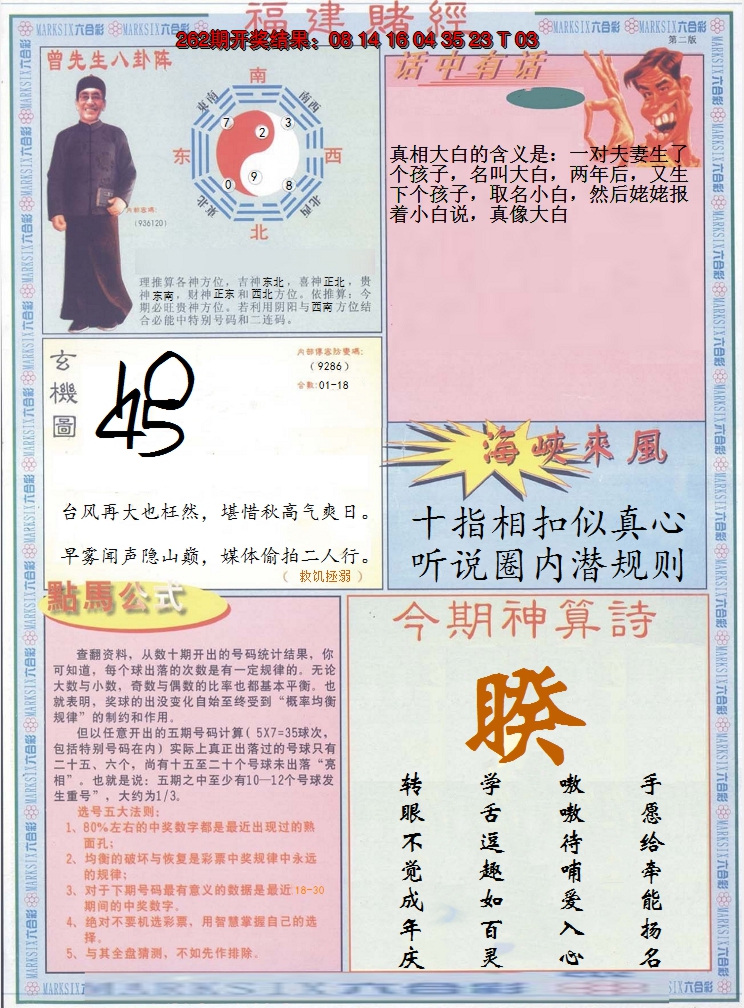 福建賭經
262期开奖结果：08 14 16 04 35 23 T 03
MARKSIX六合彩
第二版
曾先生八卦阵
南
東南
南西
东
西
7
2
3
0
9
8
東北
北西
北
内部密碼:
（936120）
理推算各神方位，吉神东北，喜神正北，贵
神东南，财神正东和西北方位。依推算：今
期必旺贵神方位。若利用阴阳与西南方位结
合必能中特别号码和二连码。
话中有话
真相大白的含义是：一对夫妻生了
个孩子，名叫大白，两年后，又生
下个孩子，取名小白，然后姥姥报
着小白说，真像大白
玄機圖
内部傳容险蜜碼:
（9286）
合數:01-18
45
台风再大也枉然，堪惜秋高气爽日。
早雾闻声隐山巅，媒体偷拍二人行。
（ 救饥拯弱 ）
海峽來風
十指相扣似真心
听说圈内潜规则
點馬公式
查翻资料，从数十期开出的号码统计结果，你
可知道，每个球出落的次数是有一定规律的。无论
大数与小数，奇数与偶数的比率也都基本平衡。也
就表明，奖球的出没变化自始至终受到“概率均衡
规律”的制约和作用。
但以任意开出的五期号码计算( 5X7=35球次，
包括特别号码在内）实际上真正出落过的号球只有
二十五、六个，尚有十五至二十个号球未出落“亮
相”。也就是说：五期之中至少有10—12个号球发
生重号”，大约为1/3。
选号五大法则：
1、80%左右的中奖数字都是最近出现过的熟
面孔；
2、均衡的破坏与恢复是彩票中奖规律中永远
的规律；
3、对于下期号码最有意义的数据是最近18-30
期间的中奖数字。
4、绝对不要机选彩票，用智慧掌握自己的选
择。
5、与其全盘猜测，不如先作排除。
今期神算詩
睽
手愿给牵能扬名
嗷嗷待哺爱入心
学舌逗趣如百灵
转眼不觉成年庆
MARKSIX六合彩